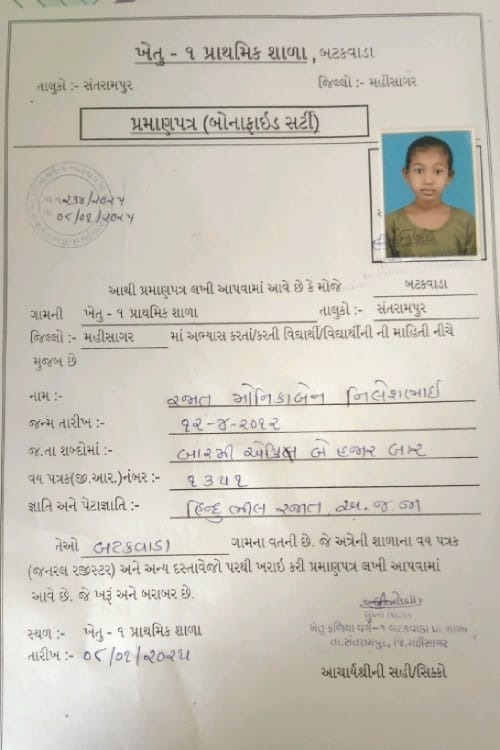 ખેતુ - ૧ પ્રાથમિક શાળા, બટકવાડા
તાલુકો :- સંતરામપુર જિલ્લો :- મહીસાગર
પ્રમાણપત્ર (બોનાફાઈડ સર્ટી)
૨૩૪/૨૦૨૫
૦૮/૦૧/૨૦૨૫
આથી પ્રમાણપત્ર લખી આપવામાં આવે છે કે મોજે બટકવાડા
ગામની ખેતુ - ૧ પ્રાથમિક શાળા તાલુકો :- સંતરામપુર
જિલ્લો :- મહીસાગર માં અભ્યાસ કરતાં/કરતી વિદ્યાર્થી/વિદ્યાર્થીની ની માહિતી નીચે
મુજબ છે
નામ :- રજાત મોનિકાબેન નિલેશભાઈ
જન્મ તારીખ :- ૧૨-૪-૨૦૧૨
જ.તા શબ્દોમાં :- બારમી એપ્રિલ બે હજાર બાર
વય પત્રક(જી.આર.)નંબર :- ૧૩૫૧
જ્ઞાતિ અને પેટાજ્ઞાતિ :- હિન્દુ ભીલ રજાત, અ.જ.જા
તેઓ બટકવાડા ગામના વતની છે. જે અત્રેની શાળાના વય પત્રક
(જનરલ રજીસ્ટર) અને અન્ય દસ્તાવેજો પરથી ખરાઈ કરી પ્રમાણપત્ર લખી આપવામાં
આવે છે. જે ખરૂં અને બરાબર છે.
સ્થળ :- ખેતુ - ૧ પ્રાથમિક શાળા
તારીખ :- ૦૮/૦૧/૨૦૨૫
મુખ્ય શિક્ષક
ખેતુ ફળિયા વર્ગ-૧ બટકવાડા પ્રા.શાળા
તા.સંતરામપુર, જિ.મહીસાગર
આચાર્યશ્રીની સહી/સિક્કો